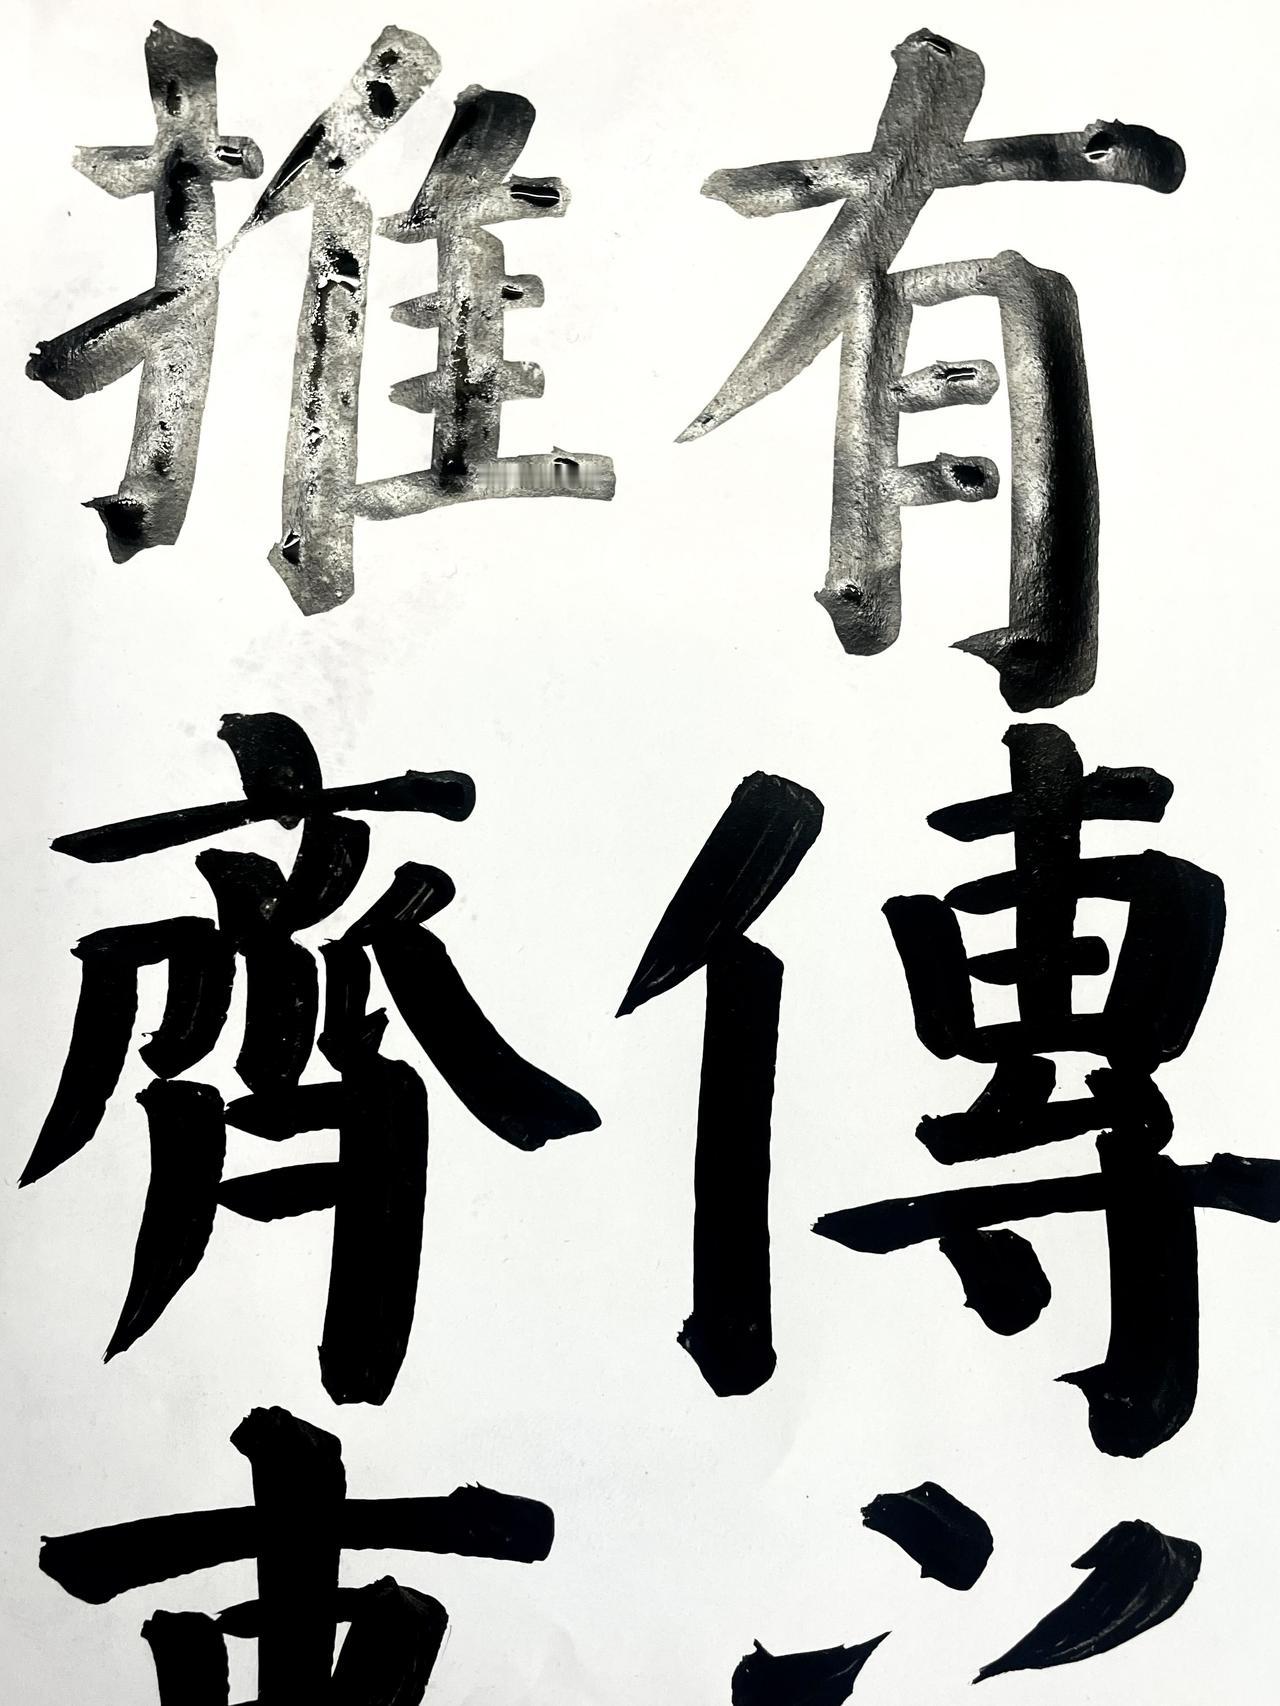 有傳
推齊